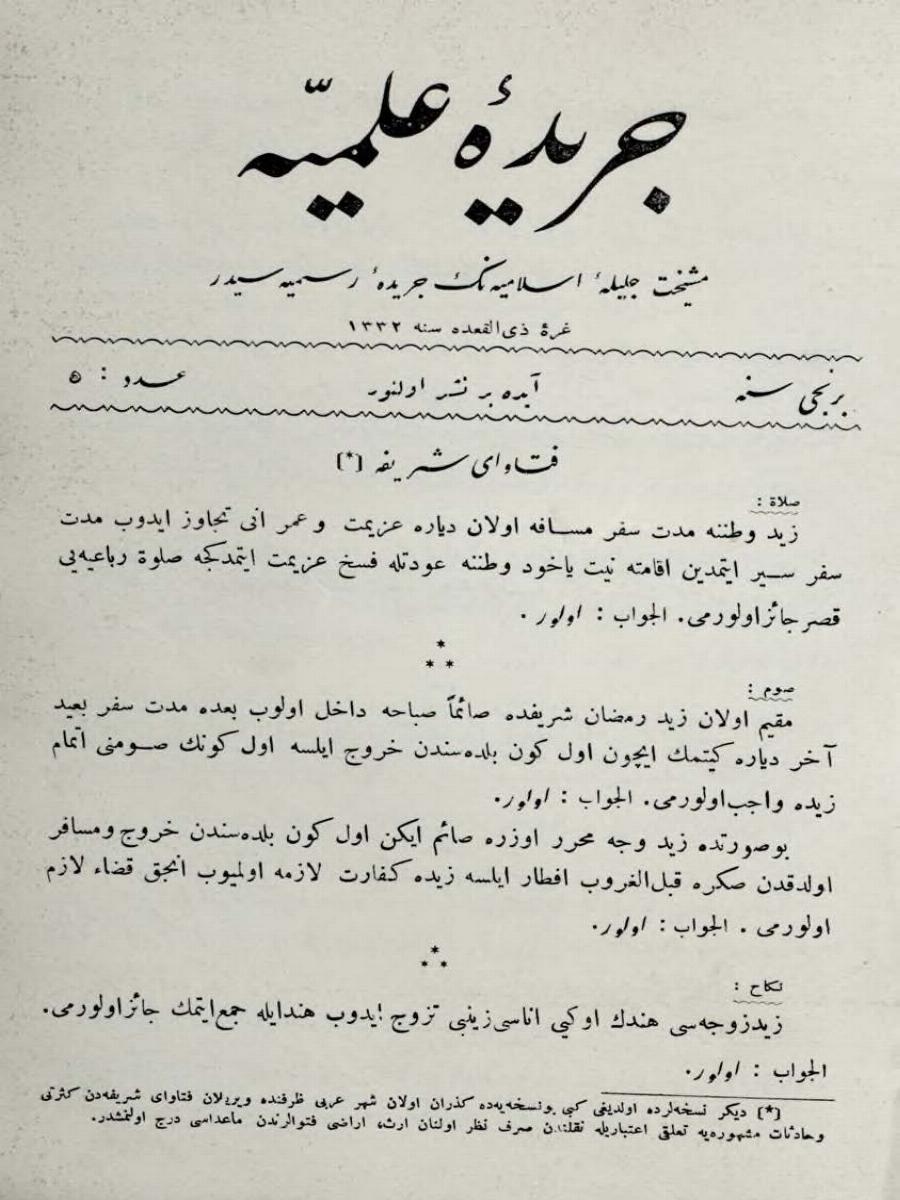 جريدۀ علميّه
مشيخت جليلۀ اسلاميه نك جريدۀ رسميه سيدر
غرۀ ذى القعده سنه ١٣٣٢
برنجى سنه
آيده بر نشر اولنور
عدد : ٥
فتاواى شريفه (*)
صلاة :
زيد وطننه مدت سفر مسافه اولان دياره عزيمت وعمر انى تجاوز ايدوب مدت
سفر سير ايتمدين اقامته نيت ياخود وطننه عودتله فسخ عزيمت ايتمدكجه صلوة رباعيه‌يى
قصر جائز اولورمى. الجواب : اولور.
*
* *
صوم :
مقيم اولان زيد رمضان شريفده صائماً صباحه داخل اولوب بعده مدت سفر بعيد
آخر دياره كيتمك ايچون اول كون بلده‌سندن خروج ايلسه اول كونك صومنى اتمام
زيده واجب اولورمى. الجواب : اولور.
بوصورتده زيد وجه محرر اوزره صائم ايكن اول كون بلده‌سندن خروج ومسافر
اولدقدن صكره قبل الغروب افطار ايلسه زيده كفارت لازمه اولميوب انجق قضاء لازم
اولورمى . الجواب : اولور.
*
* *
نكاح :
زيد زوجه‌سى هندك اوكيى اناسى زينبى تزوج ايدوب هندايله جمع ايتمك جائز اولورمى.
الجواب : اولور.
(*) ديكر نسخه‌لرده اولديغى كبى بونسخه‌يه‌ده كذران اولان شهر عربى ظرفنده ويريلان فتاواى شريفه‌دن كثرتى
وحادثات مشهوره‌يه تعلقى اعتباريله نقلندن صرف نظر اولنان ارث، اراضى فتوالرندن ماعداسى درج اولنمشدر.